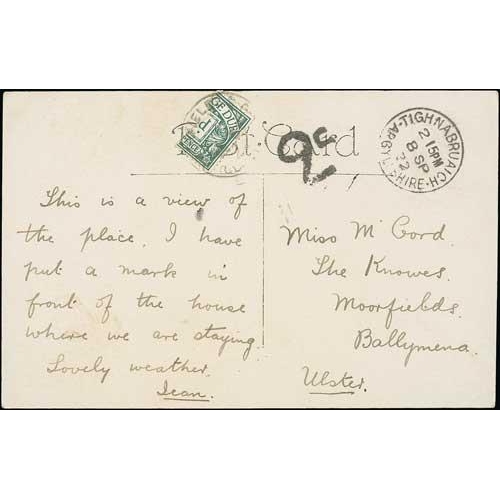 Post Card
GE DUE
1D.
2c
TIGHNABRUAICH
2 15PM
8 SP
32
ARGYLLSHIRE
This is a view of
the place, I have
put a mark in
front of the house
where we are staying
Lovely weather.
Jean.
Miss Mc Cord.
The Knowes.
Moorfields.
Ballymena.
Ulster.